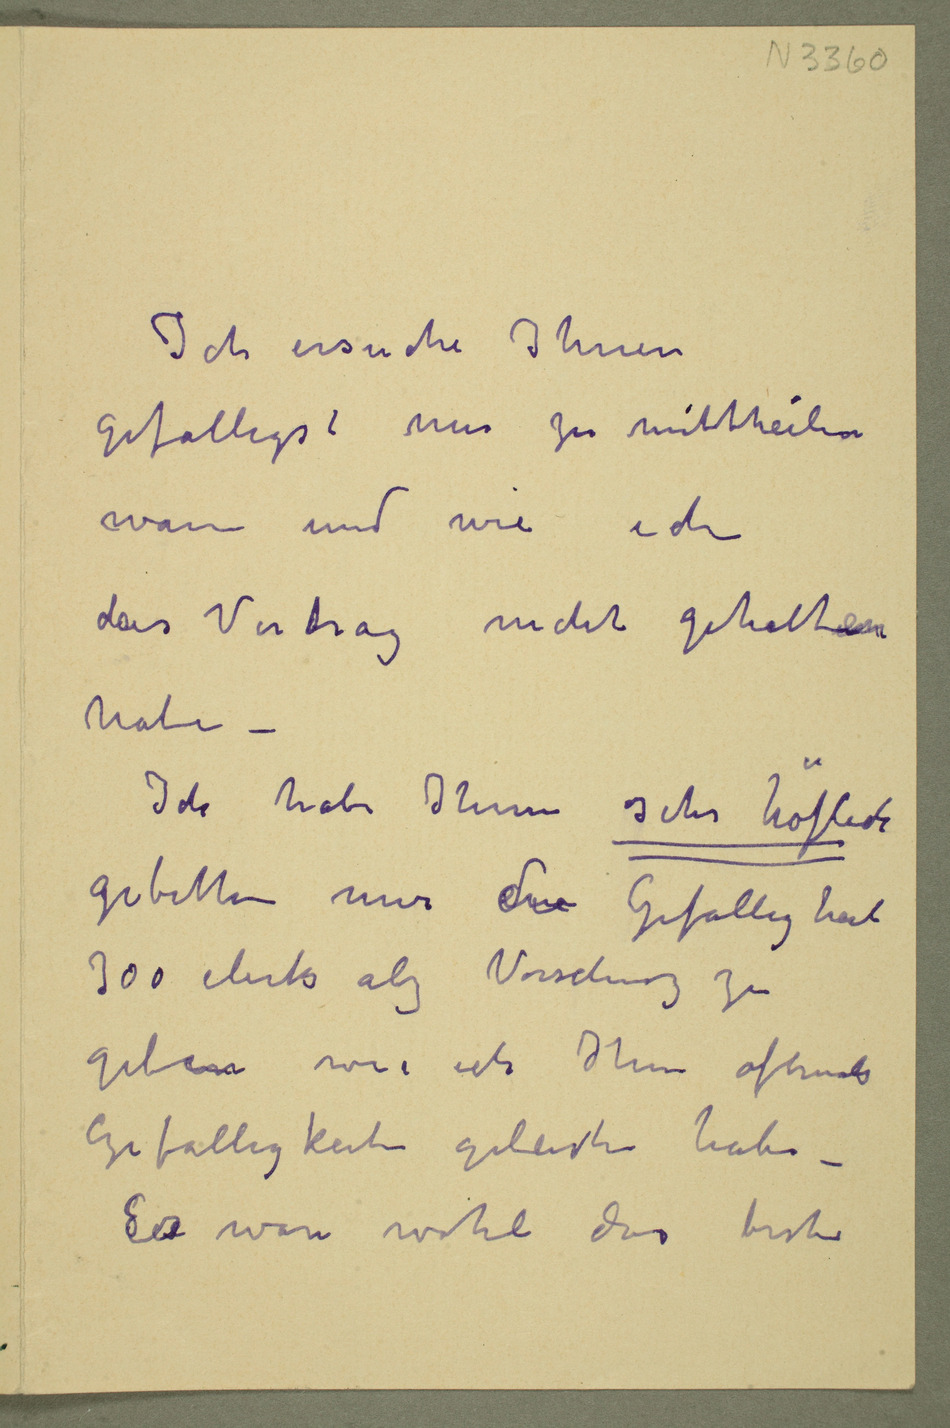 N 3360
Ich ersuche Ihnen
gefalligst mir zu mittheilen
wann und wie ich
das Vertrag nicht gehalten
habe –
Ich habe Ihnen sehr höflich
gebetten mir die Gefalligheit
300 als Vorschusz zu
geben wie ich Ihnen oftmals
Gefalligkeiten geleistet habe –
Es ware wohl das beste